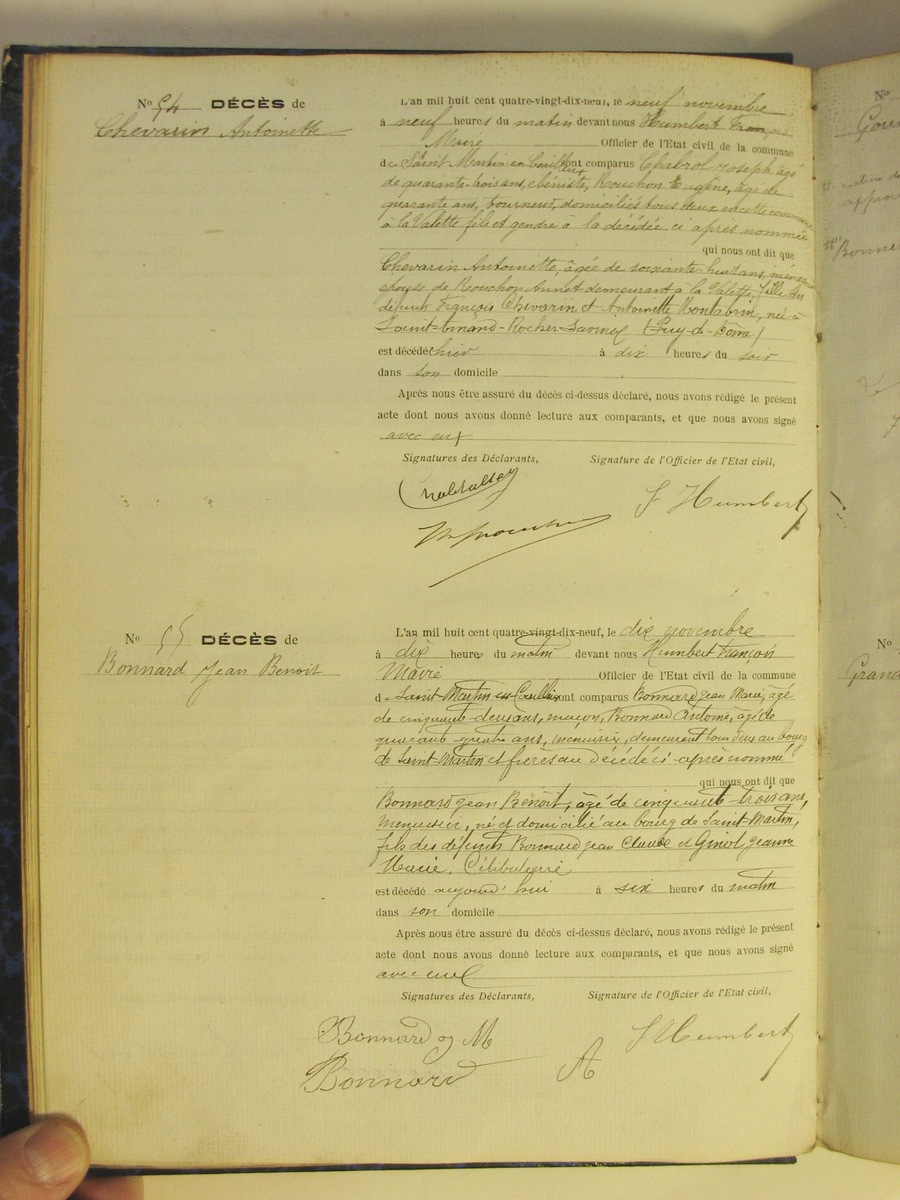 No 54 DÉCÈS de
Chevarin Antoinette
L'an mil huit cent quatre-vingt-dix-neuf, le neuf novembre
à neuf heures du matin devant nous Humbert François
Maire Officier de l'Etat civil de la commune
de Saint-Martin en sont comparus Chabrol Joseph, âgé
de quarante-trois ans, ébéniste, Reouchon Eugène, âgé de
quarante ans, tourneur, domiciliés tous deux en cette commune
à la Valette fils et gendre à la décédée ci après nommée
qui nous ont dit que
Chevarin Antoinette, âgée de soixante-huit ans, ménagère
épouse de Reouchon Annet demeurant à la Valette, fille des
défunts François Chevarin et Antoinette née à
Saint-Amand-Roche-Savine (Puy-de-Dôme)
est décédée hier à dix heures du soir
dans son domicile
Après nous être assuré du décès ci-dessus déclaré, nous avons rédigé le présent
acte dont nous avons donné lecture aux comparants, et que nous avons signé
avec eux
Signatures des Déclarants, Signature de l'Officier de l'Etat civil,
F Humbert
No 55 DÉCÈS de
Bonnard Jean Benoit
L'an mil huit cent quatre-vingt-dix-neuf, le dix novembre
à dix heures du matin devant nous Humbert François
Maire Officier de l'Etat civil de la commune
de Saint-Martin en sont comparus Bonnard Jean Marie, âgé
de cinquante-deux ans, maçon, Bonnard Antoine, âgé de
quarante quatre ans, menuisier, demeurant tous deux au bourg
de Saint-Martin et frères au décédé ci-après nommé
qui nous ont dit que
Bonnard Jean Benoit, âgé de cinquante-trois ans,
menuisier, né et domicilié au bourg de Saint-Martin,
fils des défunts Bonnard Jean Claude et Giniot Jeanne
Marie, Célibataire
est décédé aujourd'hui à six heures du matin
dans son domicile
Après nous être assuré du décès ci-dessus déclaré, nous avons rédigé le présent
acte dont nous avons donné lecture aux comparants, et que nous avons signé
avec eux
Signatures des Déclarants, Signature de l'Officier de l'Etat civil,
Bonnard J M F Humbert
Bonnard A
No
No